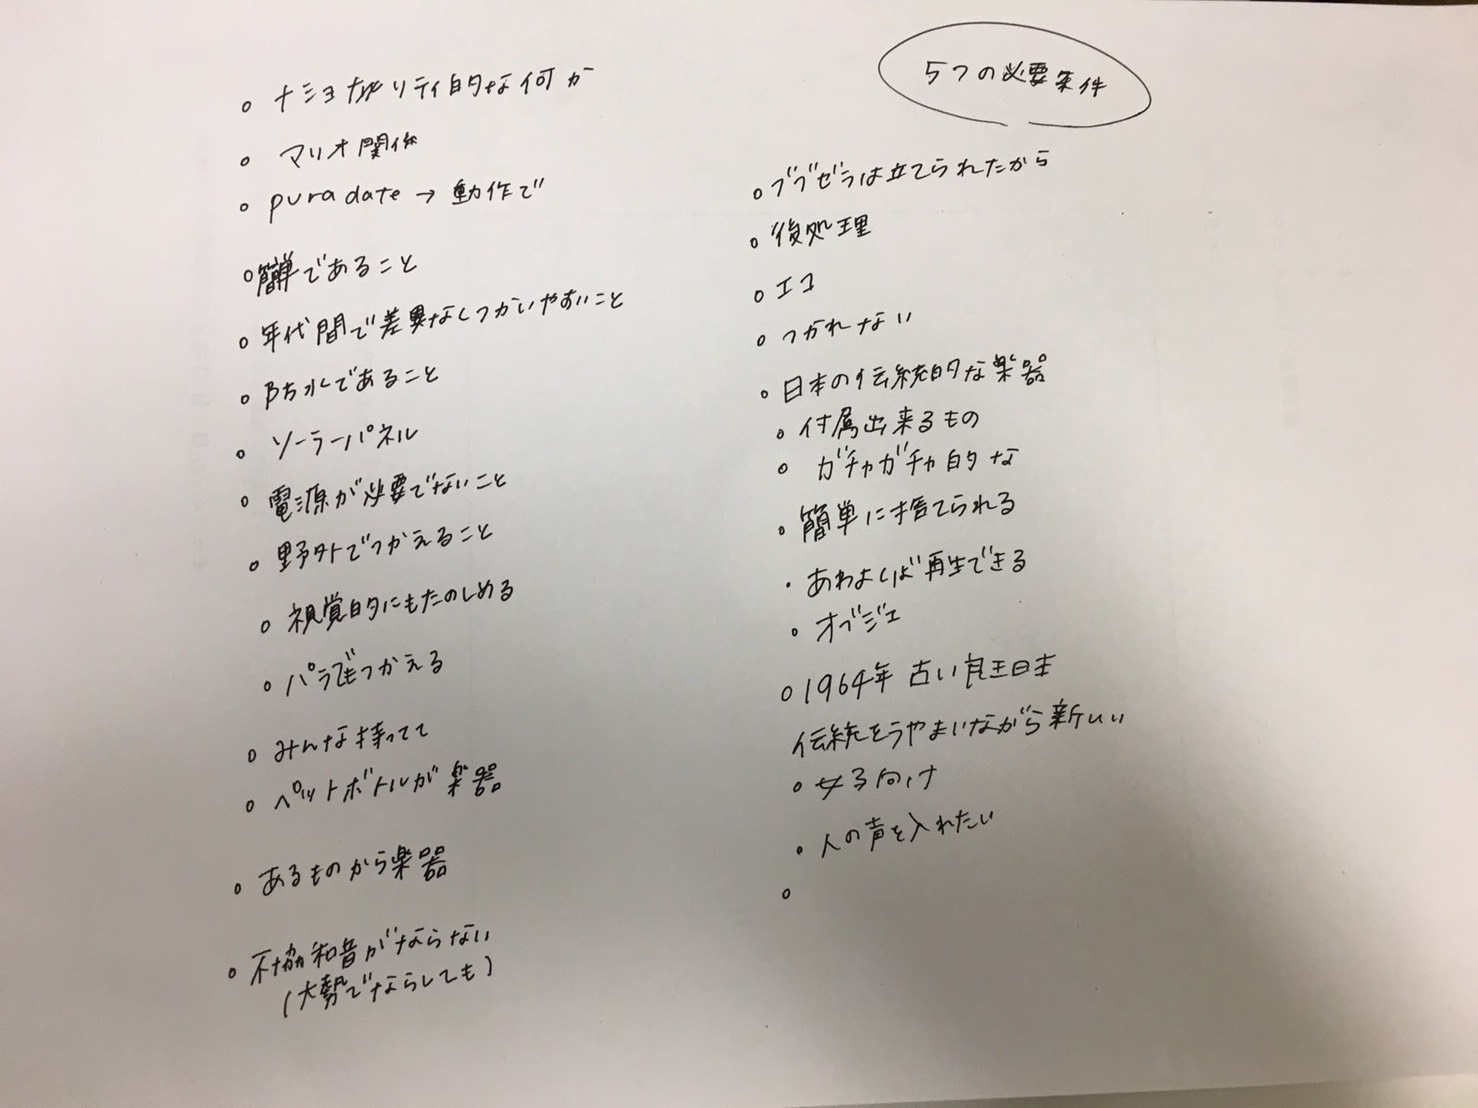 5つの必要条件
ナショナリティ的な何か
マリオ関係
puradate → 動作で
簡単であること
年代間で差異なくつかいやすいこと
防水であること
ソーラーパネル
電源が必要でないこと
野外でつかえること
視覚的にもたのしめる
パラでもつかえる
みんな持ってて
ペットボトルが楽器
あるものから楽器
不協和音がならない
(大勢でならしても)
ブブゼラは立てられたから
後処理
エコ
つかれない
日本の伝統的な楽器
付属出来るもの
ガチャガチャ的な
簡単に捨てられる
あわよくば再生できる
オブジェ
1964年 古い民主日本
伝統をうやまいながら新しい
女子向け
人の声を入れたい